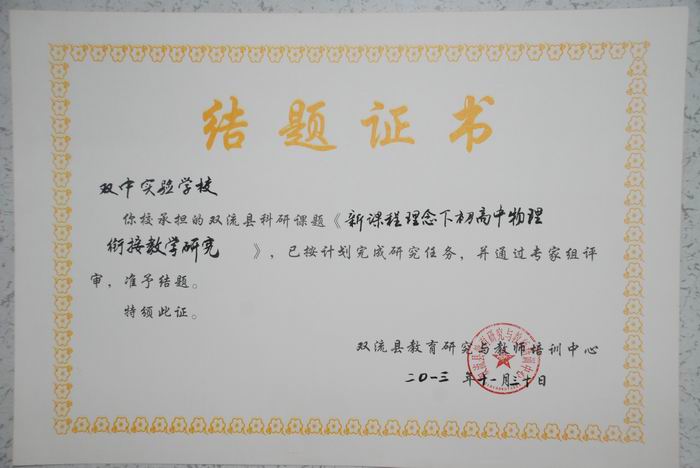 结题证书
双中实验学校
你校承担的双流县科研课题《新课程理念下初高中物理
衔接教学研究》，已按计划完成研究任务，并通过专家组评
审，准予结题。
特颁此证。
双流县教育研究与教师培训中心
二〇一三年十一月三十日